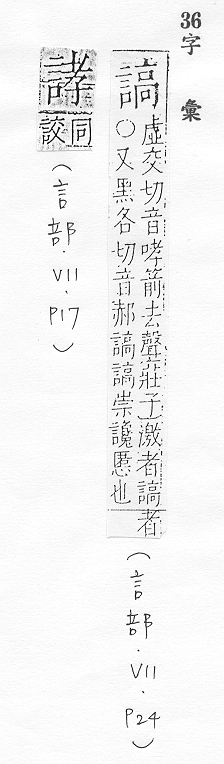 36字 彙
謞
虛交切音哮箭去聲莊子激者謞者
〇又黑各切音郝謞謞崇讒慝也
（言部．VII．P24）
誟
同
詨
（言部．VII．P17）